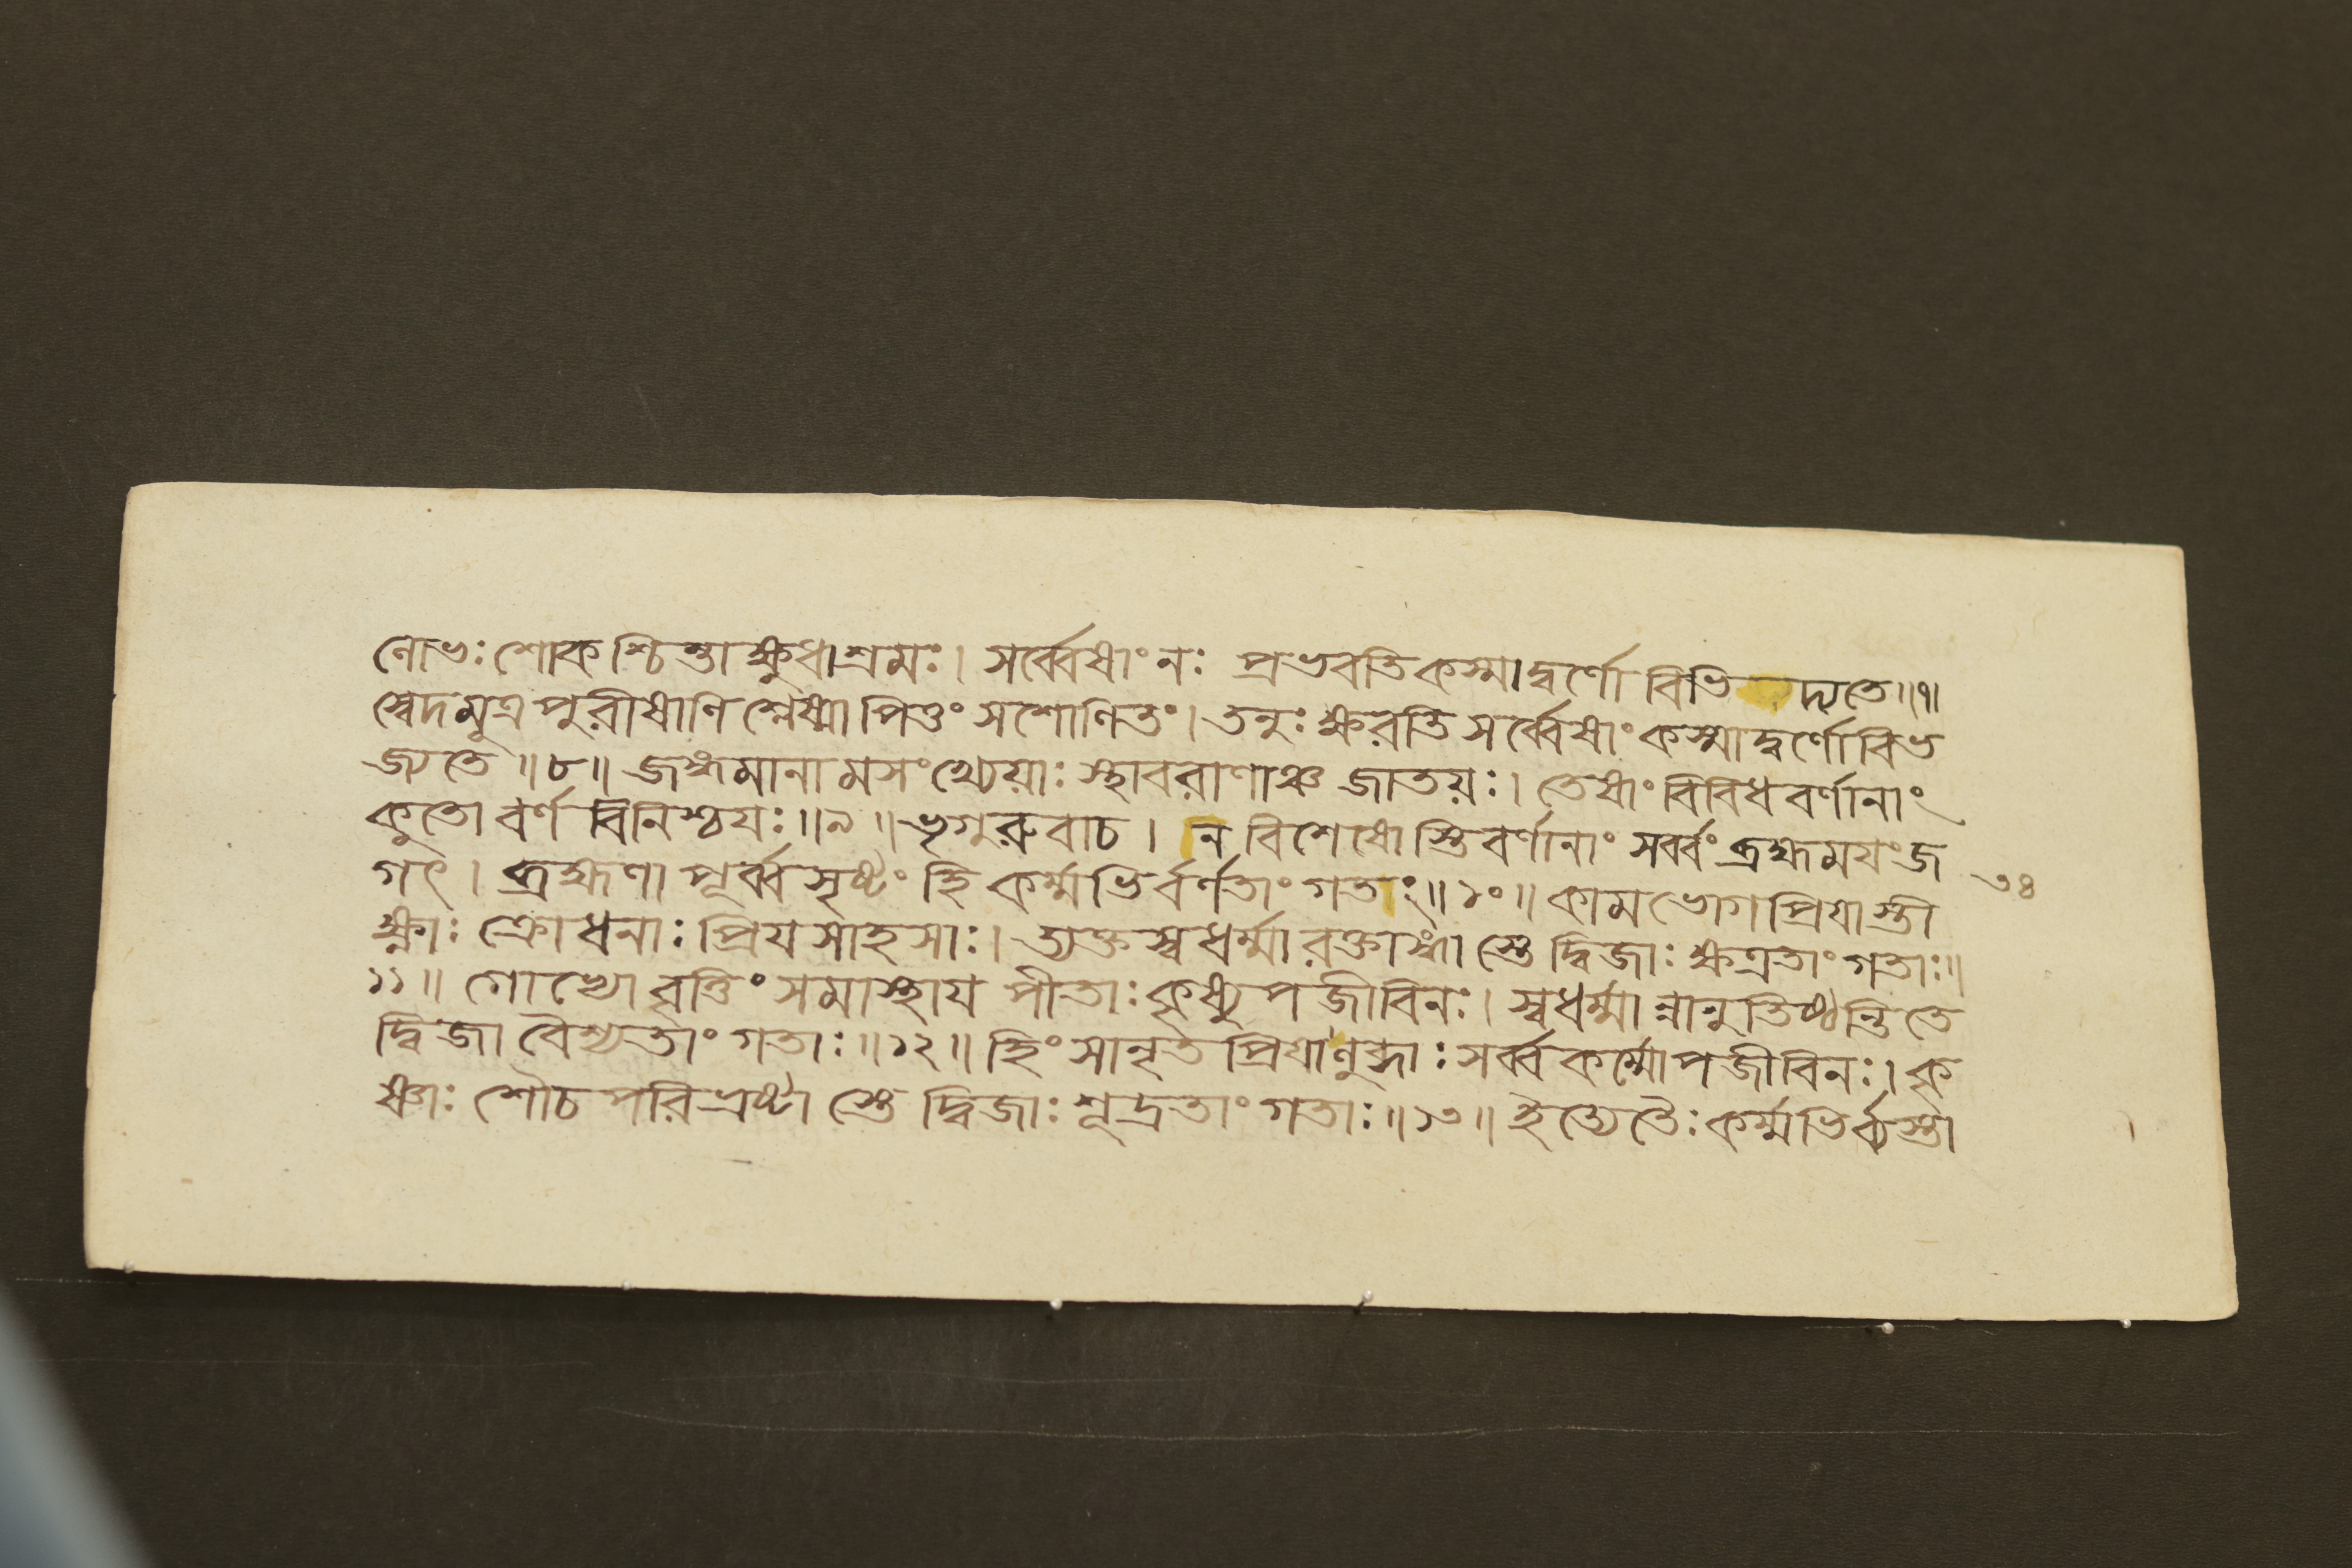 লোভঃ শোকশ্চিন্তা ক্ষুধাশ্রমঃ। সর্ব্বেষাং নঃ প্রভবতি কস্মাদ্বর্ণো বিভিদ্যতে॥৭॥
স্বেদমূত্রপুরীষাণি শ্লেষ্মা পিত্তং সশোণিতং। তনুঃ ক্ষরতি সর্ব্বেষাং কস্মাদ্বর্ণো বিভ
জ্যতে॥৮॥ জঙ্গমানামসংখ্যেয়াঃ স্থাবরাণাঞ্চ জাতয়ঃ। তেষাং বিবিধবর্ণানাং
কুতো বর্ণবিনিশ্চয়ঃ॥৯॥ ভৃগুরুবাচ। ন বিশেষোস্তি বর্ণানাং সর্ব্বং ব্রহ্মময়ং জ
গৎ। ব্রহ্মণা পূর্ব্বসৃষ্টং হি কর্ম্মভির্বর্ণতাং গতাং॥১০॥ কামভোগপ্রিয়াস্তী
ক্ষ্ণাঃ ক্রোধনাঃ প্রিয়সাহসাঃ। ত্যক্তস্বধর্ম্মা রক্তাঙ্গা স্তে দ্বিজাঃ ক্ষত্রতাং গতাঃ॥
১১॥ গোভ্যো বৃত্তিং সমাস্থায় পীতাঃ কৃষ্যুপজীবিনঃ। স্বধর্ম্মান্নানুতিষ্ঠন্তি তে
দ্বিজা বৈশ্যতাং গতাঃ॥১২॥ হিংসানৃতপ্রিয়া লুব্ধাঃ সর্ব্বকর্ম্মোপজীবিনঃ। কৃ
ষ্ণাঃ শৌচপরিভ্রষ্টা স্তে দ্বিজাঃ শূদ্রতাং গতাঃ॥১৩॥ ইত্যেতৈঃ কর্ম্মভির্ব্যস্তা
৩৪